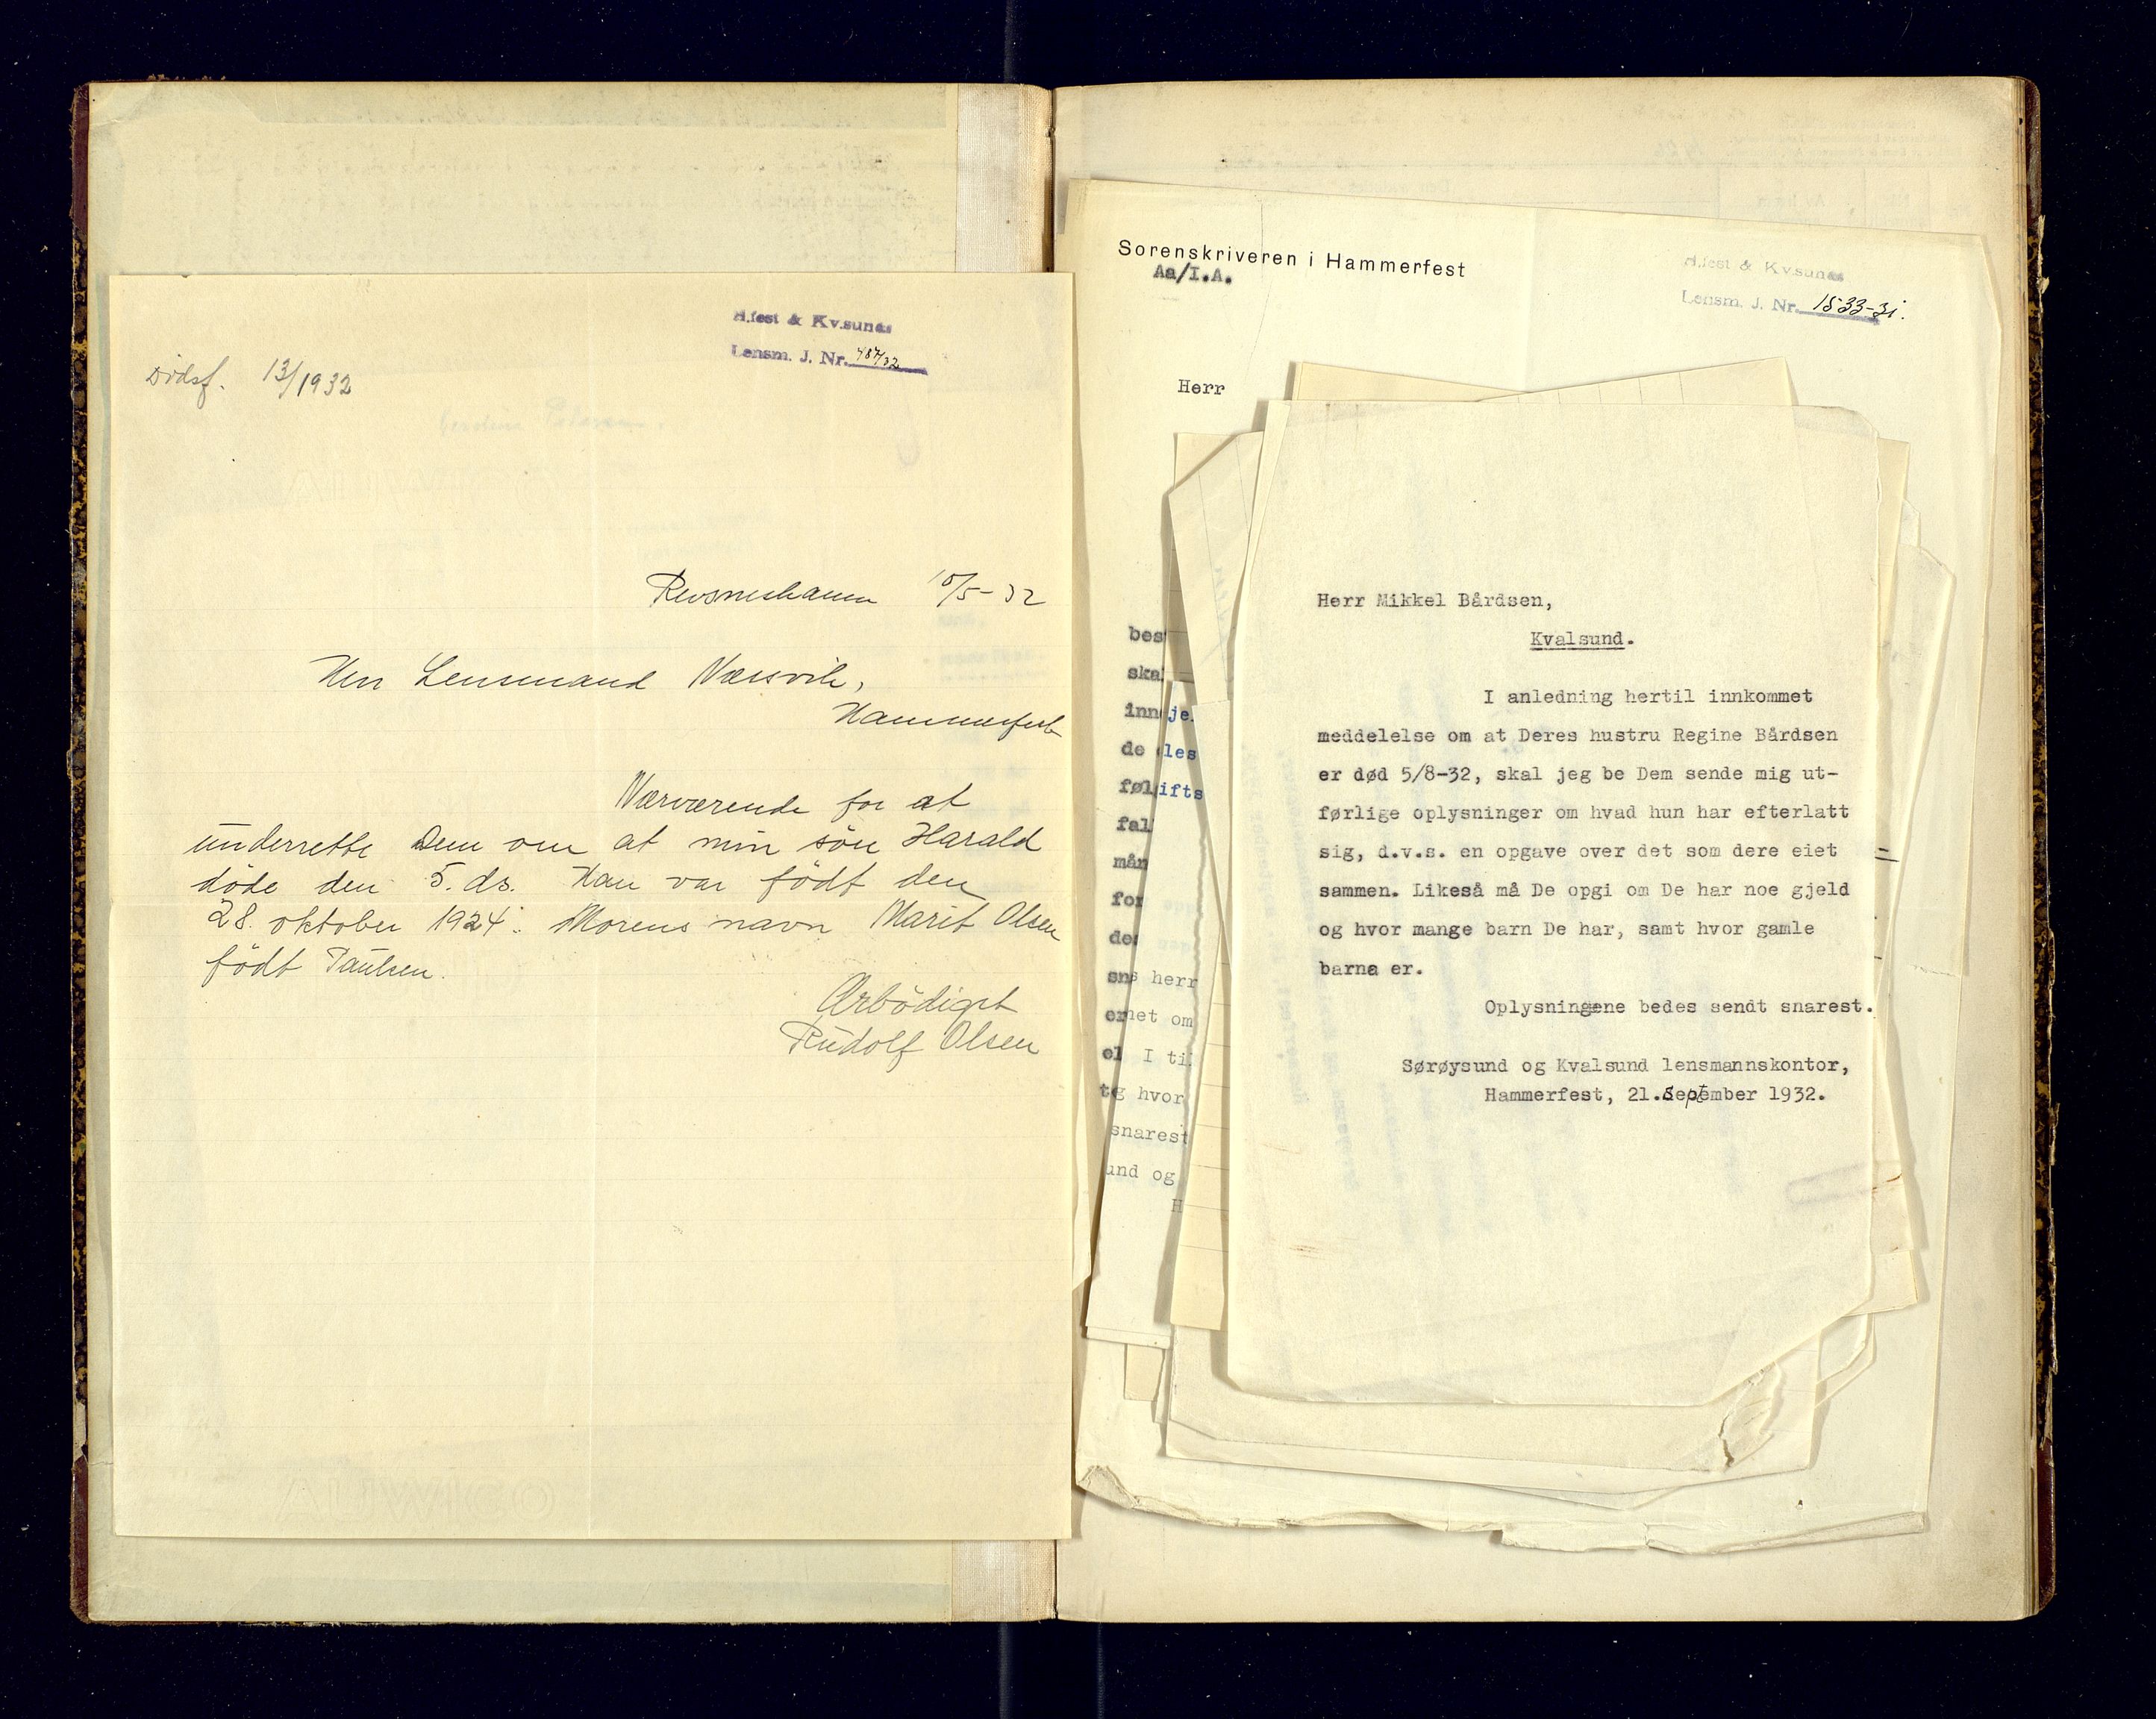 H.fest & Kv.sunds
Lensm. J. Nr. 487/32
Dødsf. 13/1932
Revsneshamn 10/5-32
Herr Lensmand Næssvik,
Hammerfest
Nærværende for at
underrette Dem om at min sön Harald
döde den 5. ds. Han var födt den
28. oktober 1924. Morens navn Marit Olsen
födt Paulsen.
Ærbödigst
Rudolf Olsen
Sorenskriveren i Hammerfest
Aa/I.A.
H.fest & Kv.sunds
Lensm. J. Nr. 1533-31.
Herr
bes
ska
inn je
de les
føl ifts
fal
mån
for
de
sns herr
ernet om
el I til
tg hvor
snarest
und og
H
Herr Mikkel Bårdsen,
Kvalsund.
I anledning hertil innkommet
meddelelse om at Deres hustru Regine Bårdsen
er død 5/8-32, skal jeg be Dem sende mig ut-
førlige oplysninger om hvad hun har efterlatt
sig, d.v.s. en opgave over det som dere eiet
sammen. Likeså må De opgi om De har noe gjeld
og hvor mange barn De har, samt hvor gamle
barna er.
Oplysningene bedes sendt snarest.
Sørøysund og Kvalsund lensmannskontor,
Hammerfest, 21.September 1932.